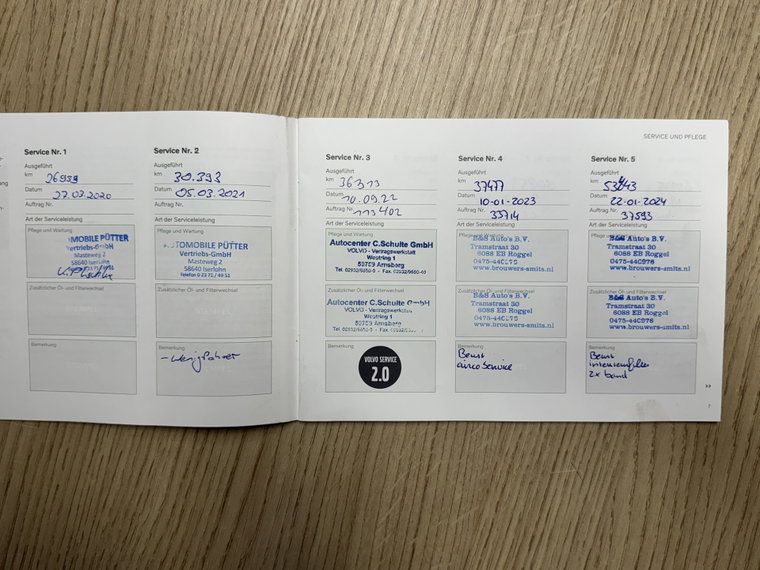 SERVICE UND PFLEGE
Service Nr. 1
Ausgeführt
km 26939
Datum 27.03.2020
Auftrag Nr.
Art der Serviceleistung
Pflege und Wartung
MOBILE PÜTTER
Vertriebs-GmbH
Masteweg 2
58640 Iserlohn
Zusätzlicher Öl- und Filterwechsel
Bemerkung
Service Nr. 2
Ausgeführt
km 30.393
Datum 05.03.2021
Auftrag Nr.
Art der Serviceleistung
Pflege und Wartung
TOMOBILE PÜTTER
Vertriebs-GmbH
Masteweg 2
58640 Iserlohn
Telefon 0 23 71 / 49 51
Zusätzlicher Öl- und Filterwechsel
Bemerkung
- Wenigfahrer
Service Nr. 3
Ausgeführt
km 36313
Datum 10.09.22
Auftrag Nr. 113402
Art der Serviceleistung
Pflege und Wartung
Autocenter C.Schulte GmbH
VOLVO - Vertragswerkstatt
Westring 1
59759 Arnsberg
Zusätzlicher Öl- und Filterwechsel
Autocenter C.Schulte GmbH
VOLVO - Vertragswerkstatt
Westring 1
59759 Arnsberg
Bemerkung
VOLVO SERVICE
2.0
Service Nr. 4
Ausgeführt
km 37477
Datum 10-01-2023
Auftrag Nr. 33714
Art der Serviceleistung
Pflege und Wartung
B&S Auto's B.V.
Tramstraat 30
6088 EB Roggel
0475-440576
www.brouwers-smits.nl
Zusätzlicher Öl- und Filterwechsel
B&S Auto's B.V.
Tramstraat 30
6088 EB Roggel
www.brouwers-smits.nl
Bemerkung
Beurt
airco service
Service Nr. 5
Ausgeführt
km
Datum 22-01-2024
Auftrag Nr. 37593
Art der Serviceleistung
Pflege und Wartung
B&S Auto's B.V.
Tramstraat 30
6088 EB Roggel
0475-440576
www.brouwers-smits.nl
Zusätzlicher Öl- und Filterwechsel
B&S Auto's B.V.
Tramstraat 30
6088 EB Roggel
0475-440576
www.brouwers-smits.nl
Bemerkung
Beurt
2x band
7